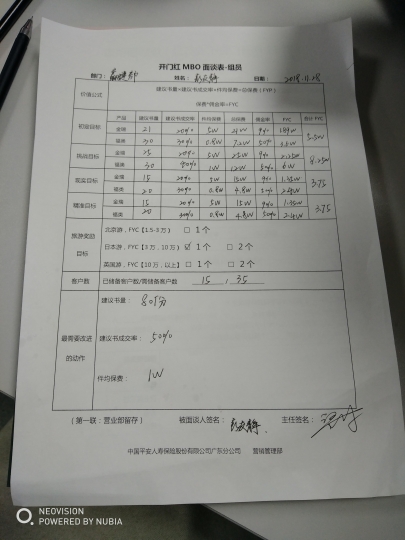 开门红 MBO 面谈表-组员
部门： 姓名： 日期：2018.11.28
价值公式 建议书量*建议书成交率*件均保费=总保费（FYP）
保费*佣金率=FYC
产品 建议书量 建议书成交率 件均保费 总保费 佣金率 FYC 合计 FYC
初级目标 金瑞 21 20% 5W 21W 9% 1.89W
福类 30 30% 0.8W 7.2W 50% 3.6W
挑战目标 金瑞 25 20% 5W 25W 9% 2.25W 8.25W
福类 30 1W 12W 50% 6W
底盘目标 金瑞 15 20% 5W 15W 9% 1.35W 3.75
福类 20 30% 0.8W 4.8W 50% 2.4W
精准目标 金瑞 15 20% 5W 15W 9% 1.35W 3.75
福类 20 30% 0.8W 4.8W 50% 2.4W
旅游奖励目标 北京游，FYC【1.5-3万】 □ 1个
日本游，FYC【3万，10万】 ☑ 1个 □ 2个
英国游，FYC【10万，以上】 □ 1个 □ 2个
客户数 已储备客户数/需储备客户数 15 / 35
最需要改进的动作 建议书量：80份
建议书成交率：50%
件均保费：1W
（第一联：营业部留存） 被面谈人签名： 主任签名：
中国平安人寿保险股份有限公司广东分公司 营销管理部
NEOVISION
POWERED BY NUBIA